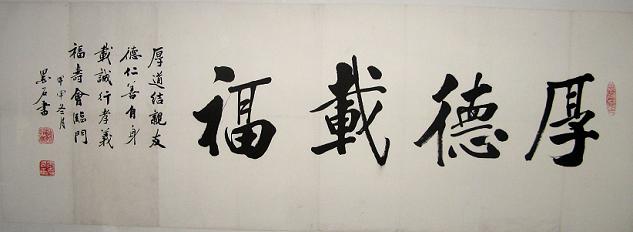 厚德載福
厚道結親友
德仁善自身
載誠行孝義
福壽會臨門
甲申冬月
墨石書